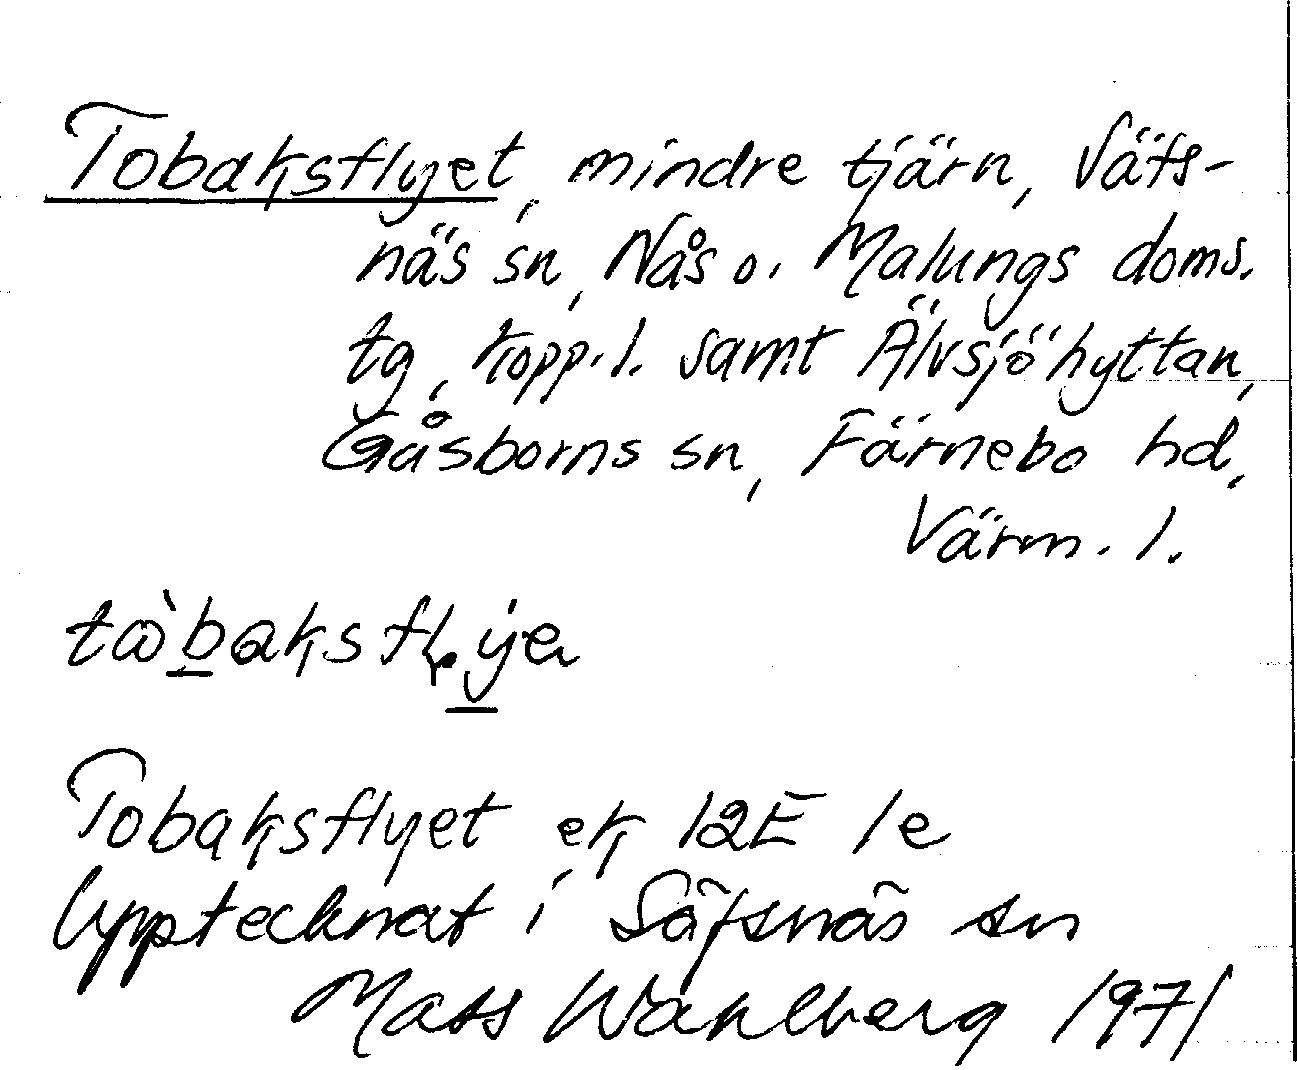 Tobaksflyet, mindre tjärn, Säfs-
näs sn, Nås o. Malungs doms.
tg, Kopp.l. samt Älvsjöhyttan,
Gåsborns sn, Färnebo hd,
Värm. l.
Tobaksflyet ek 12E 1e
Upptecknat i Säfsnäs sn
Mats Wahlberg 1971